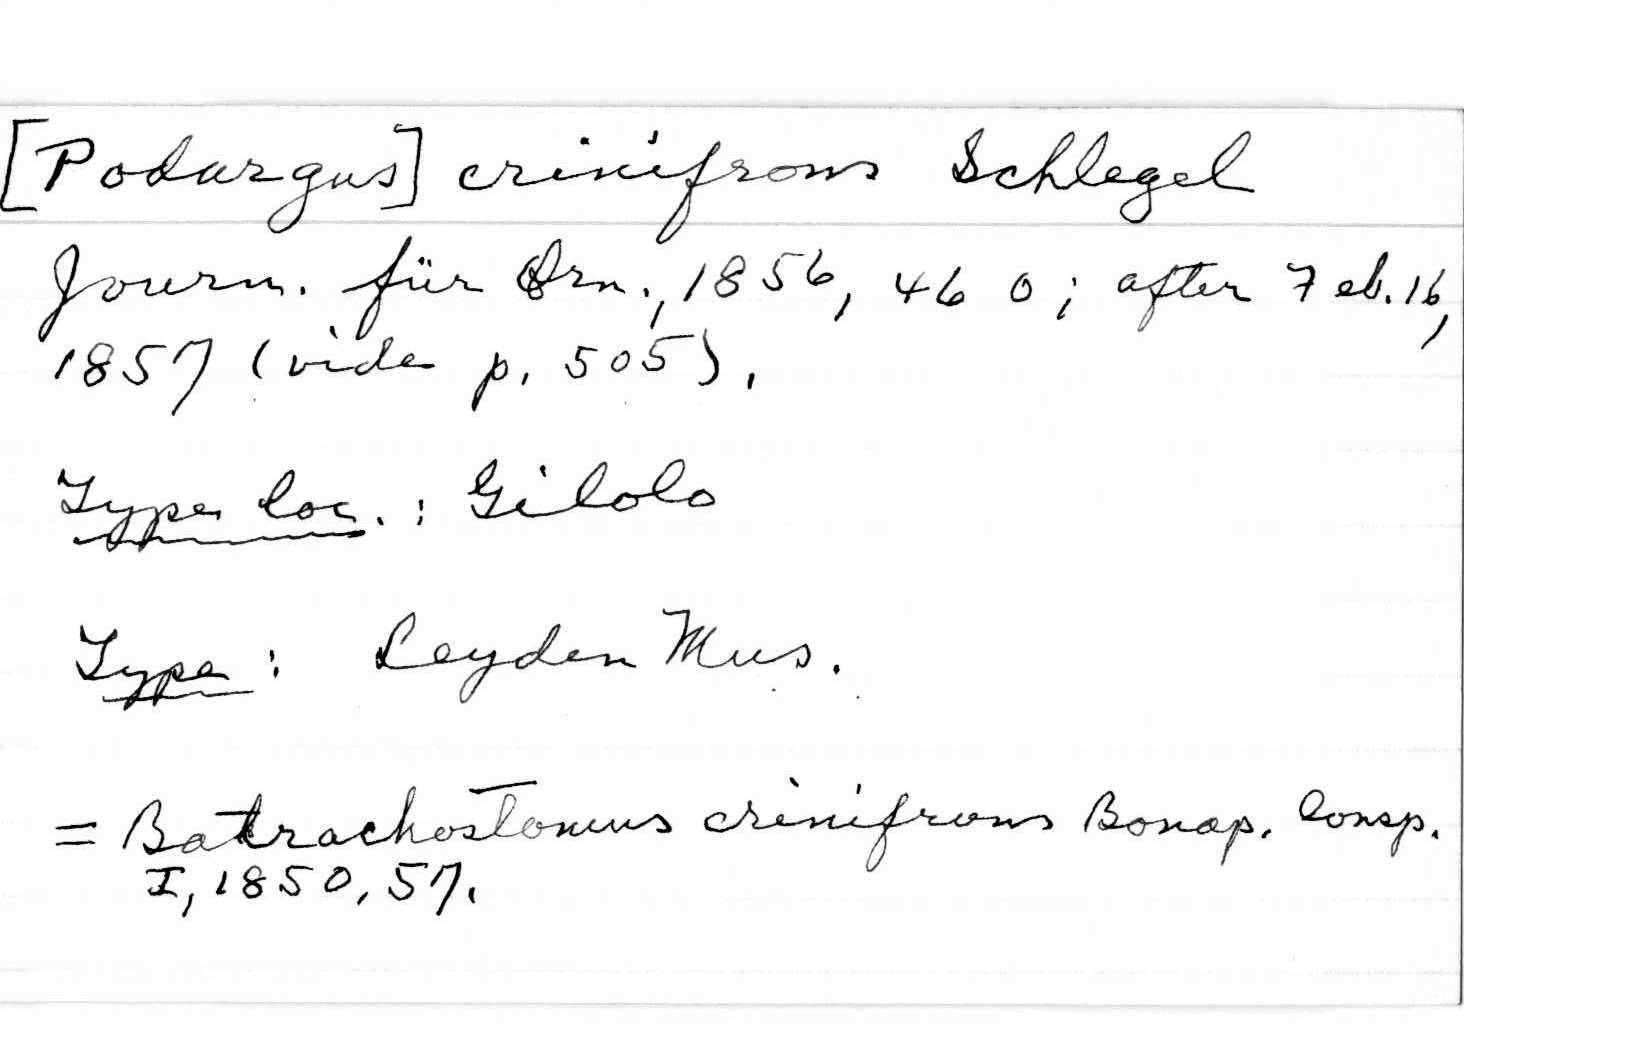 [Podargus] crinifrons Schlegel
Journ. für Orn., 1856, 460; after Feb. 16,
1857 (vide p. 505).
Type loc.: Gilolo
Type: Leyden Mus.
= Batrachostomus crinifrons Bonap. Consp.
I, 1850, 57.